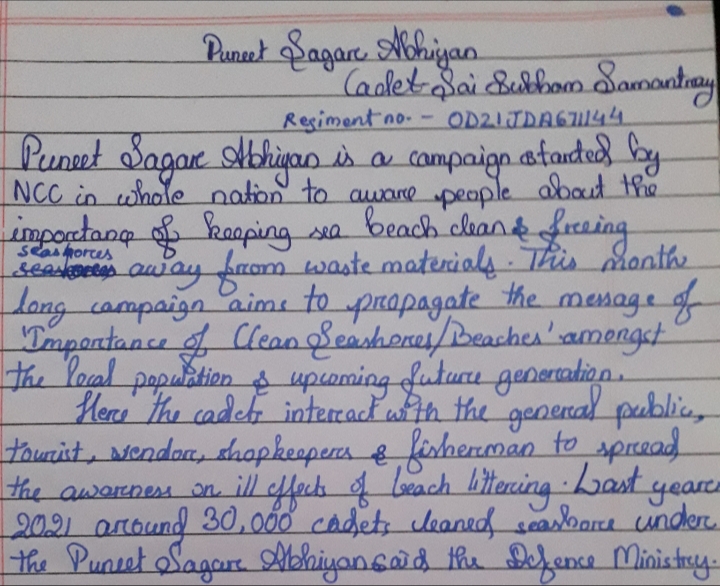 Puneet Sagar Abhiyan
Cadet Sai Subham Samantray
Regiment no. - OD21JDA671144
Puneet Sagar Abhiyan is a campaign started by
NCC in whole nation to aware people about the
importance of keeping sea beach clean & freeing
seashores
away from waste materials. This month
long campaign aims to propagate the message of
'Importance of Clean Seashores/Beaches' amongst
the local population & upcoming future generation.
Here the cadets interact with the general public,
tourist, vendor, shopkeepers & fisherman to spread
the awarness on ill effects of beach littering. Last year
2021 around 30,000 cadets cleaned seashore under
the Puneet Sagar Abhiyan said the Defence Ministry.